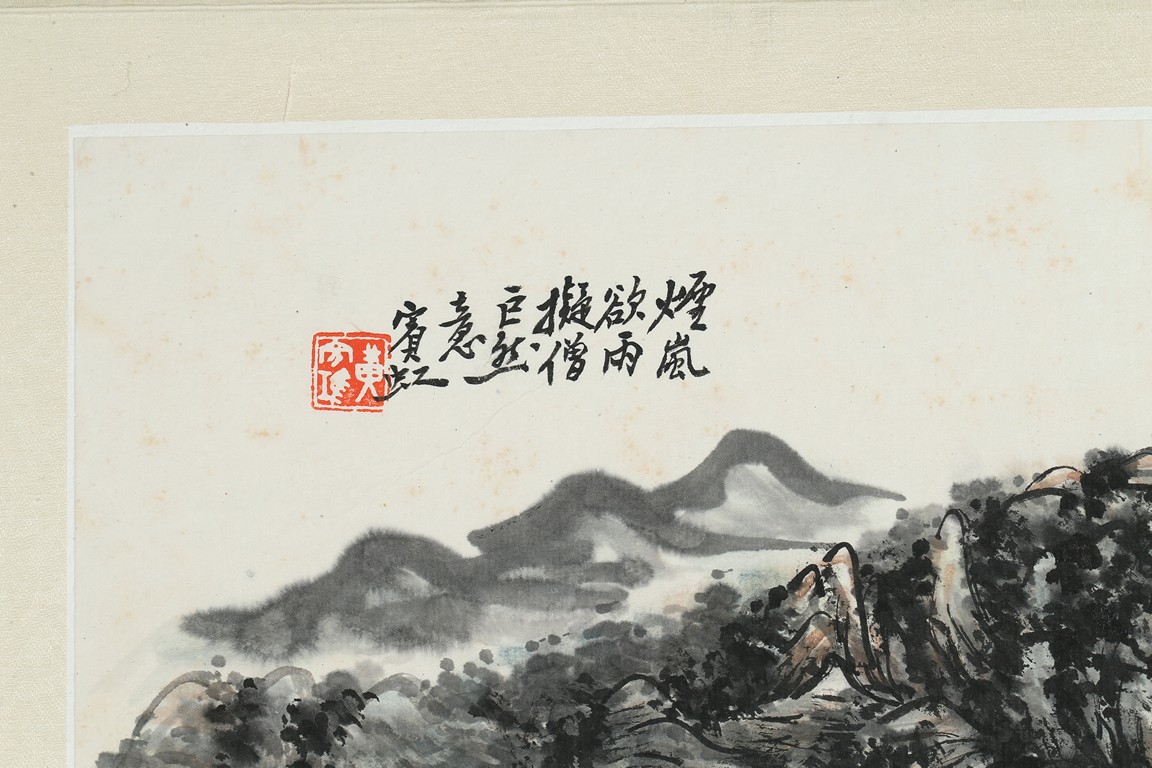 煙嵐
欲雨
擬僧
巨然
意
賓虹
黃賓虹